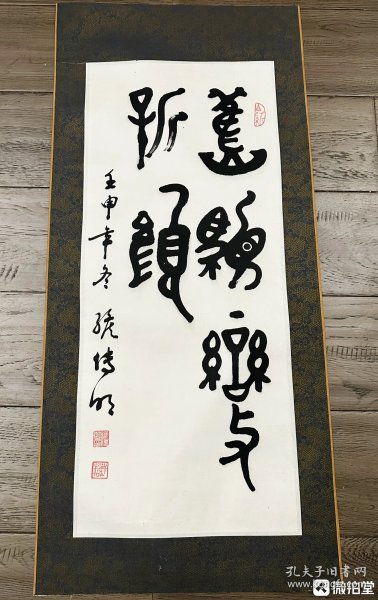 舊貌變
新顏
壬申年冬
孔夫子旧书网
微拍堂